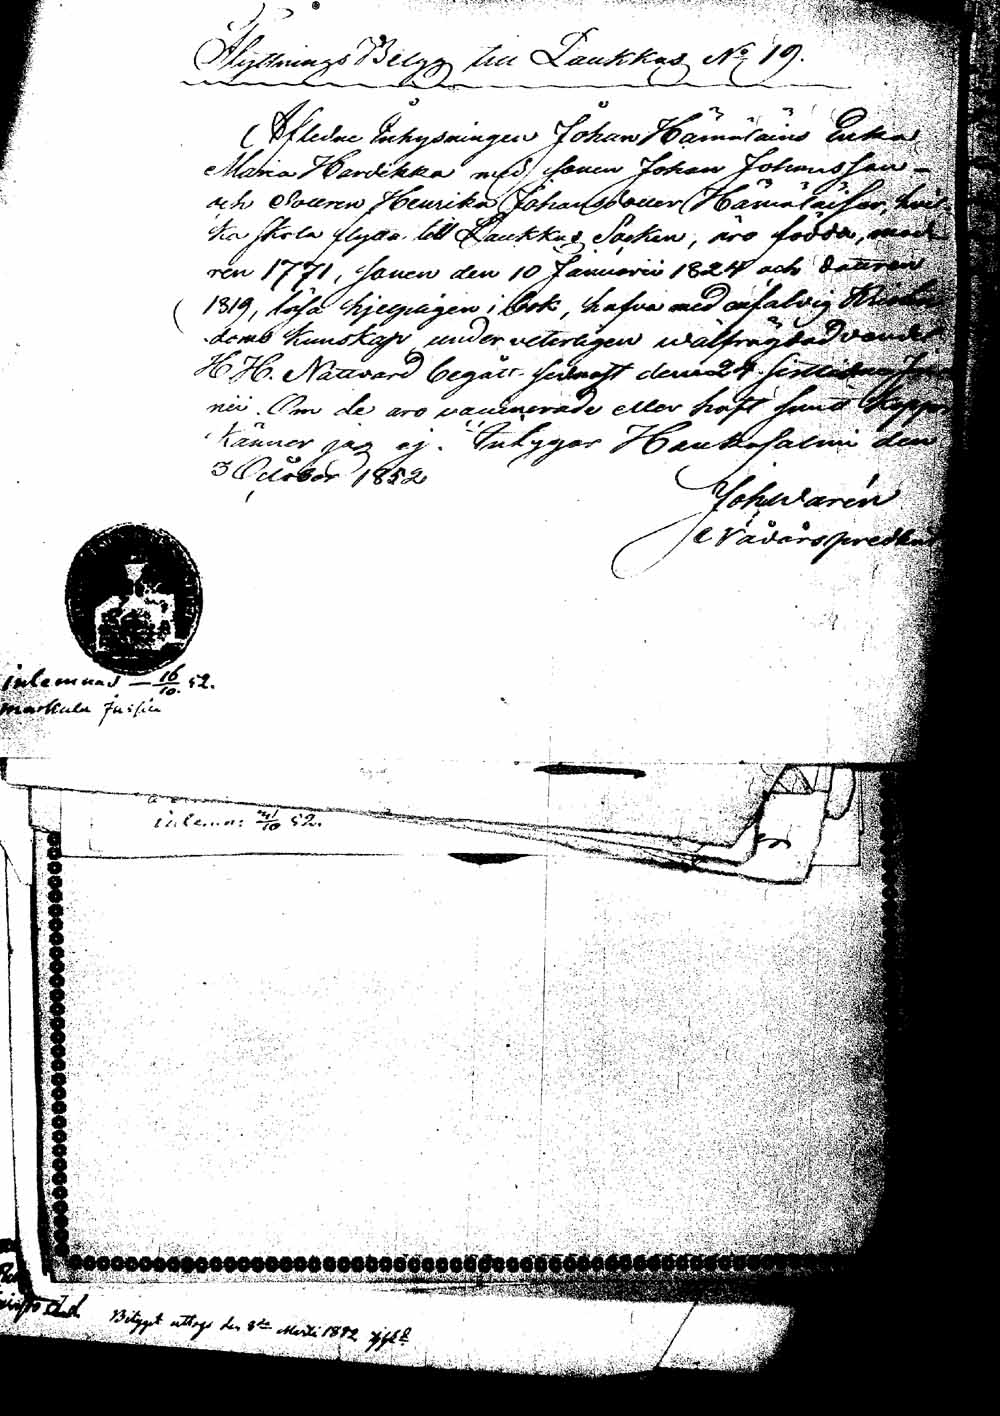 Flyttnings Betyg till Laukkas No 19.
Afledne Inhysningen Johan Hämäläins Enka
Maria Hardikka med sonen Johan Johansson
och dottren Henrika Johansdotter Hämäläiser, hvil-
ka skola flytta till Laukkas Socken, äro födda, mod-
ren 1771, sonen den 10 Januarii 1824 och dottren
1819, läsa hjelpligen i bok, hafva med enfalig Kristen-
doms kunskap, under veterligen välfrägdad vandel
H. H. Nattvard begått sednast den 24 sistledne Jun
nii. Om de äro vaccinerade eller haft smitt Koppor
känner jag ej. Intygar Hankasalmi den
3 October 1852
Joh Warén
Vådårspredkant
inlemnad — 16/10. 52.
Markula
inlemn: /10 52.
Betyget uttogs den 8de Martii 1892